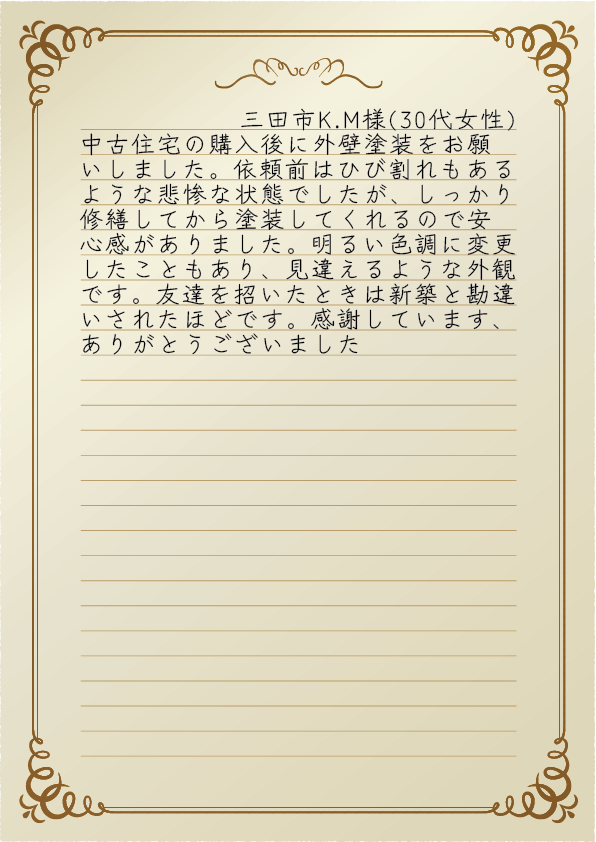 三田市K.M様(30代女性)
中古住宅の購入後に外壁塗装をお願
いしました。依頼前はひび割れもある
ような悲惨な状態でしたが、しっかり
修繕してから塗装してくれるので安
心感がありました。明るい色調に変更
したこともあり、見違えるような外観
です。友達を招いたときは新築と勘違
いされたほどです。感謝しています、
ありがとうございました